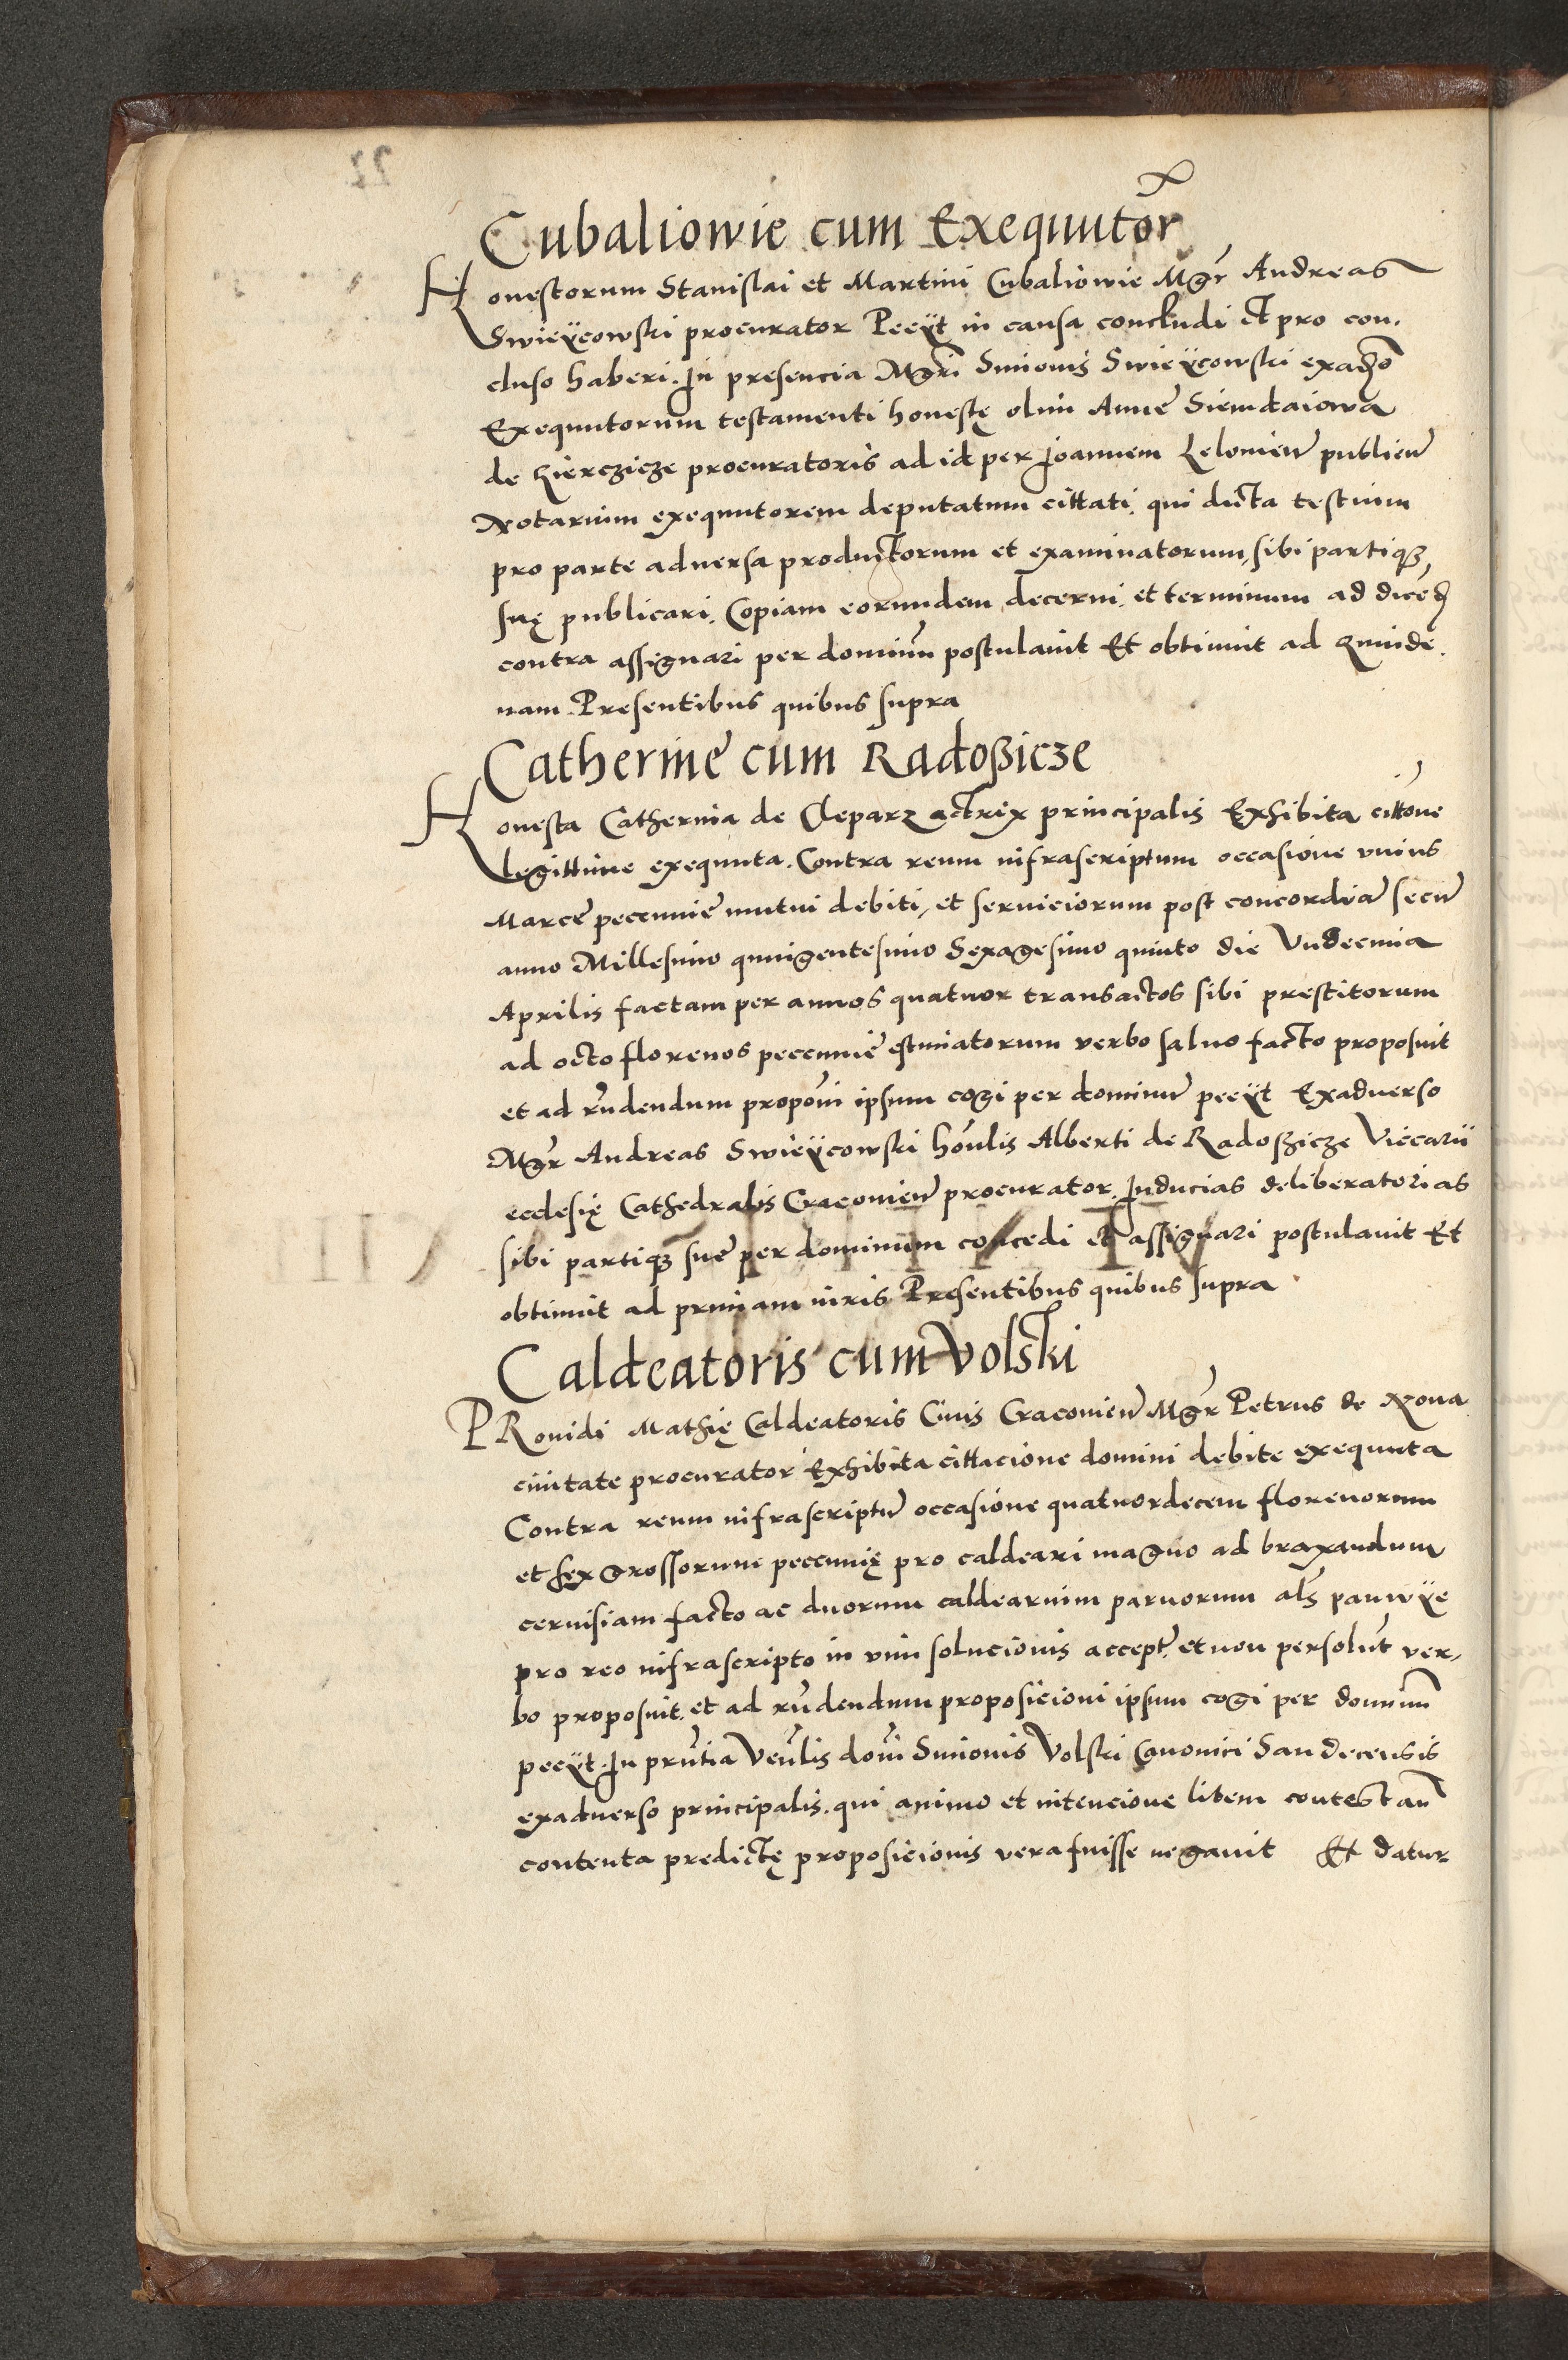 Cubaliowie cum Exequutor̃
Honestorum Stanislai et Martini Cubaliowie Mgr̃ Andreas
Swieÿcowski procurator Peeÿt in causa concludi et pro con-
cluso haberi. In presencia Mgr̃i Simonis Swieÿcowski exad̃o
Exequutorum testamenti honestę olim Anne Siemdaiowa
de procuratoris ad id per Joannem Lelowien̄ publicū
Notarium exequutorem deputatum cittati. qui dicta testium
pro parte aduersa productorum et examinatorum, sibi partiqȝ
suę publicari. Copiam eorundem decerni. et terminum ad dicēđ
contra assignari per dominũ postulauit Et obtinuit ad Quinde-
nam. Presentibus quibus supra
Catherine cum Radoßicze
Honesta Catherina de Cleparz actrix principalis Exhibita citt̃one
legittime exequuta. Contra reum infrascriptum occasione vnius
Marce pecunie mutui debiti, et seruiciorum post concordiā secū
anno Millesimo quingentesimo Sexagesimo quinto die Vndecima
Aprilis factam per annos quatuor transactos sibi prestitorum
ad octo florenos peccunie estimatorum verbo saluo facto proposuit
et ad rñdendum propõni ipsum cogi per dominū peeÿt Exaduerso
Mgr̃ Andreas Swieÿcowski hoñlis Alberti de Radoszicze Viccarii
ecclesię Cathedralis Cracouien̄ procurator. Inducias deliberatorias
sibi partiqȝ sue per dominum concedi et assignari postulauit Et
obtinuit ad primam iuris. Presentibus quibus supra
Caldeatoris cum Volski
PRouidi Mathię Caldeatoris Ciuis Cracouien̄ Mgr̃ Petrus de Noua
ciuitate procurator Exhibita cittacione domini debite exequuta
Contra reum infrascriptū occasione quatuordecem florenorum
et sex grossorum peccunię pro caldeari magno ad braxandum
ceruisiam facto ac duorum caldearium paruorum al̃s panwÿe
pro reo infrascripto in vim solucionis accept̃. et non persolut̃ ver-
bo proposuit. et ad rñdendum proposicioni ipsum cogi per dominũ
peeÿt. In prñtia Veñlis doñi Simonis Volski Canonici Sandecensis
exaduerso principalis. qui animo et intencione litem contestañ
contenta predictę proposicionis vera fuisse negauit Et datur